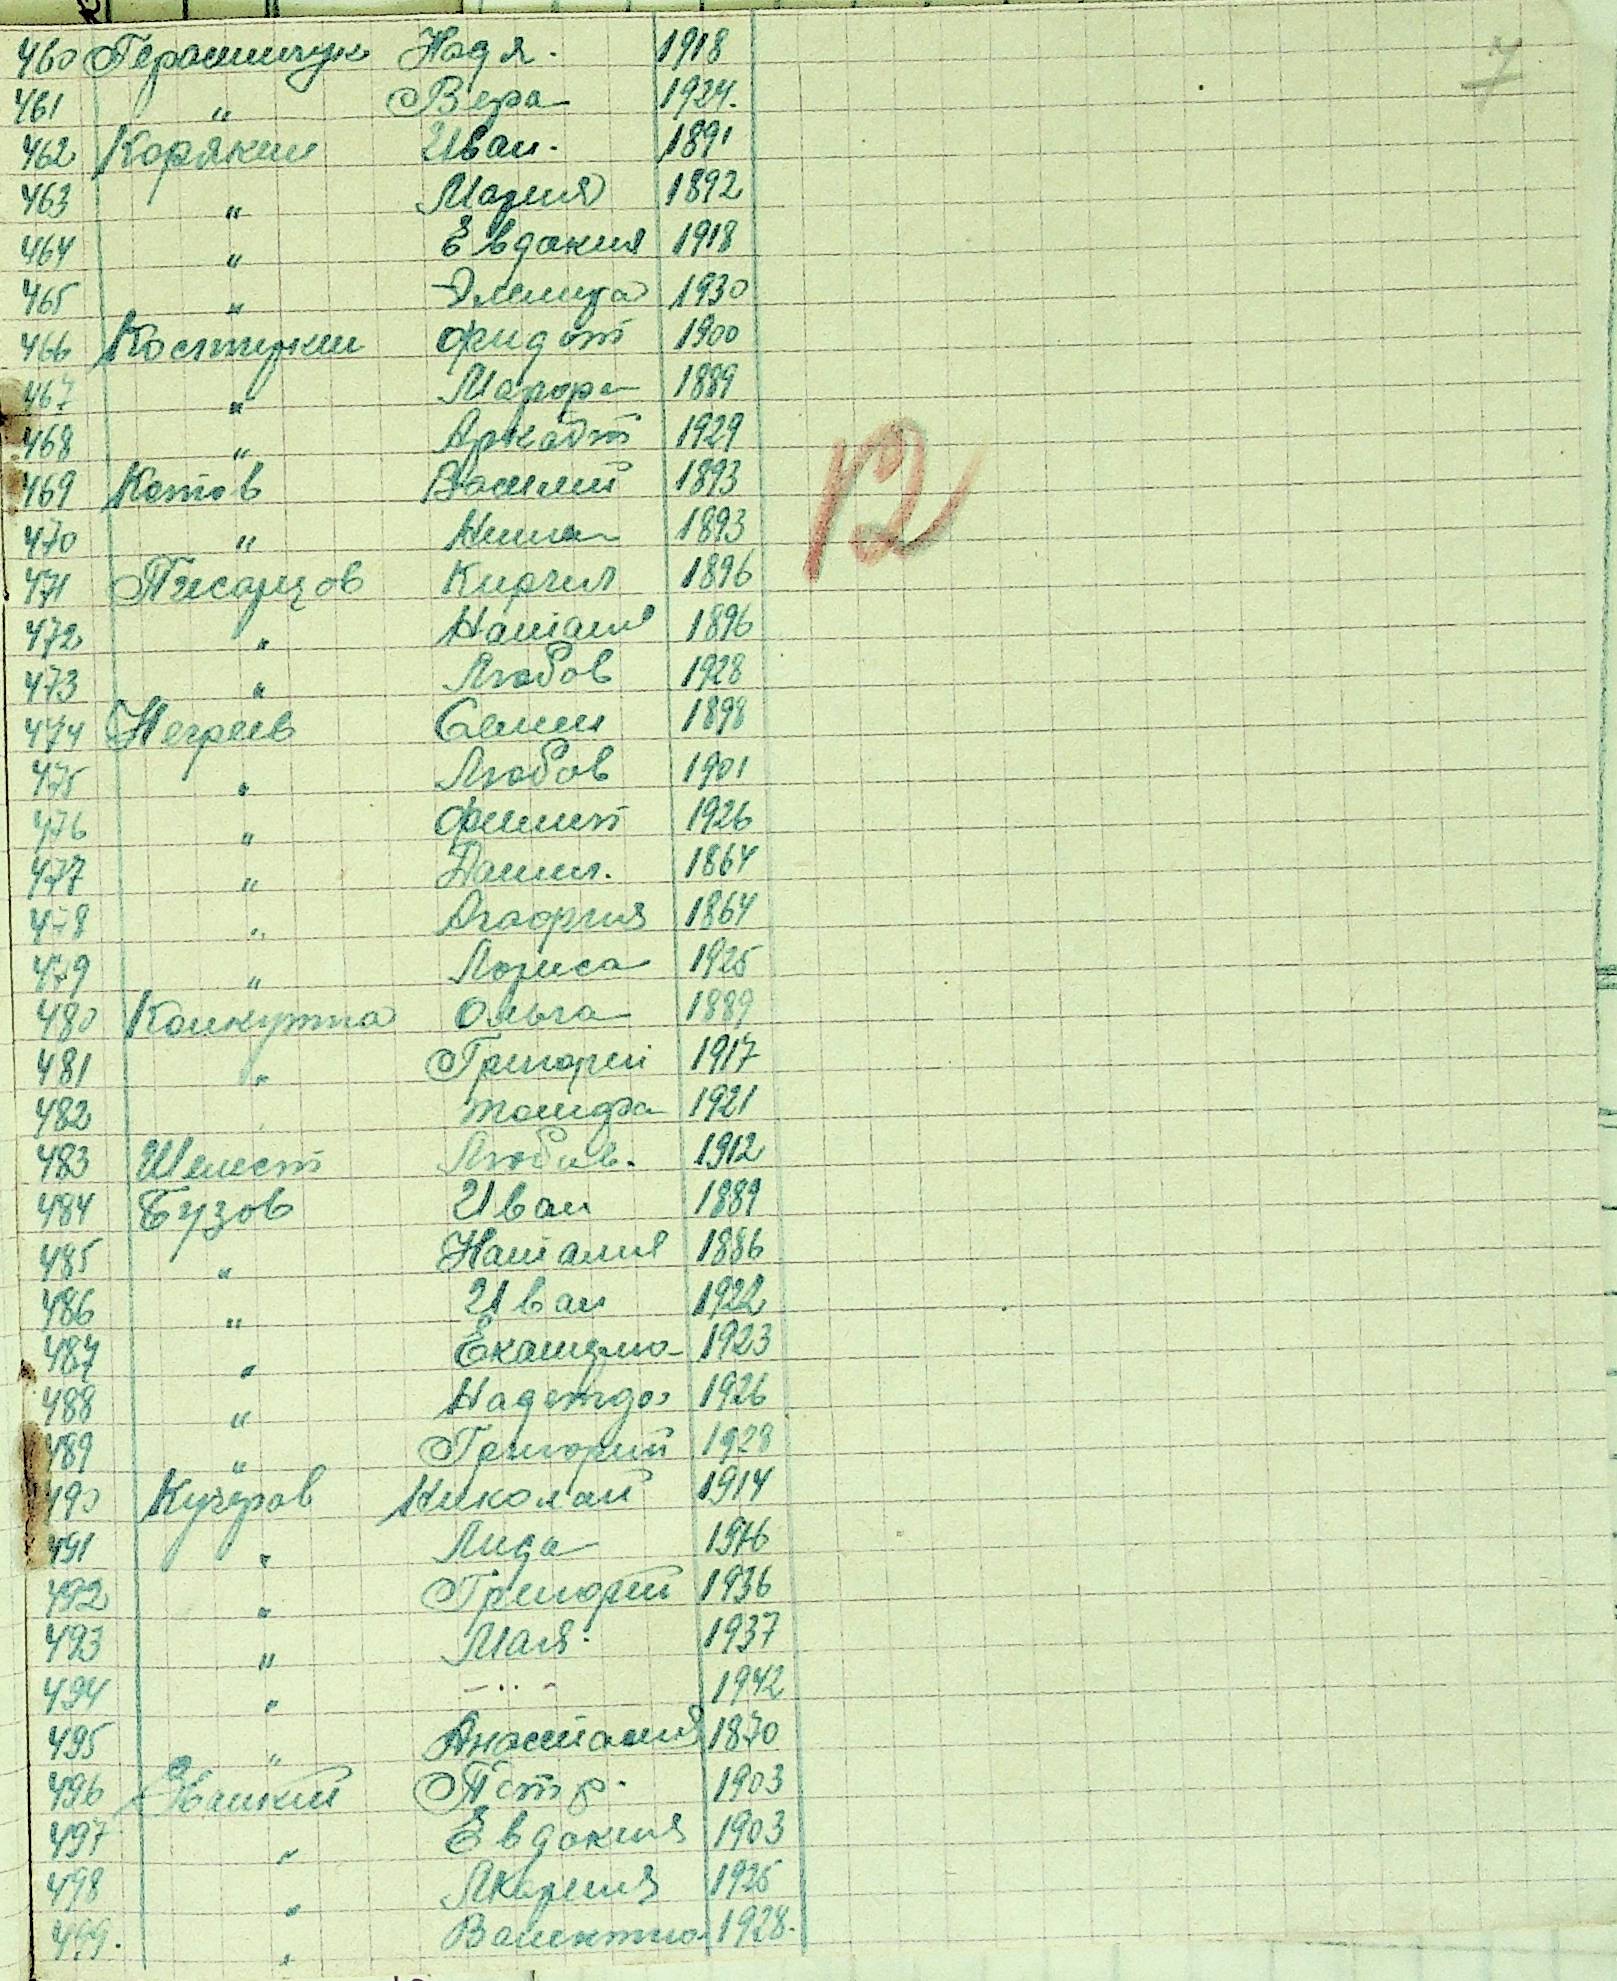 7
460 Герасимчук Надя. 1918
461 " Вера 1924.
462 Корякин Иван. 1891
463 " Мария 1892
464 " Евдокия 1918
465 " 1930
466 Костюкин Фидот 1900
467 " 1889
468 " 1929
469 Котов Василий 1893
12
470 " Нина 1893
471 Писарцов Кирил 1896
472 " Наталия 1896
473 " Любов 1928
474 Негреев Семен 1898
475 " Любов 1901
476 " 1926
477 " Данил. 1864
478 " Агафия 1864
479 " Лариса 1925
480 Ольга 1889
481 " Григорей 1917
482 1921
483 Шелест Любов. 1912
484 Бузов Иван 1889
485 " Наталия 1886
486 " Иван 1922
487 " 1923
488 " Надежда 1926
489 " Григорий 1928
490 Кучеров Николай 1914
491 " Лида 1916
492 " Григорий 1936
493 " Мая. 1937
494 " - .. - 1942
495 " 1870
496 Петр. 1903
497 " Евдокия 1903
498 " 1925
499. " Валентина 1928.